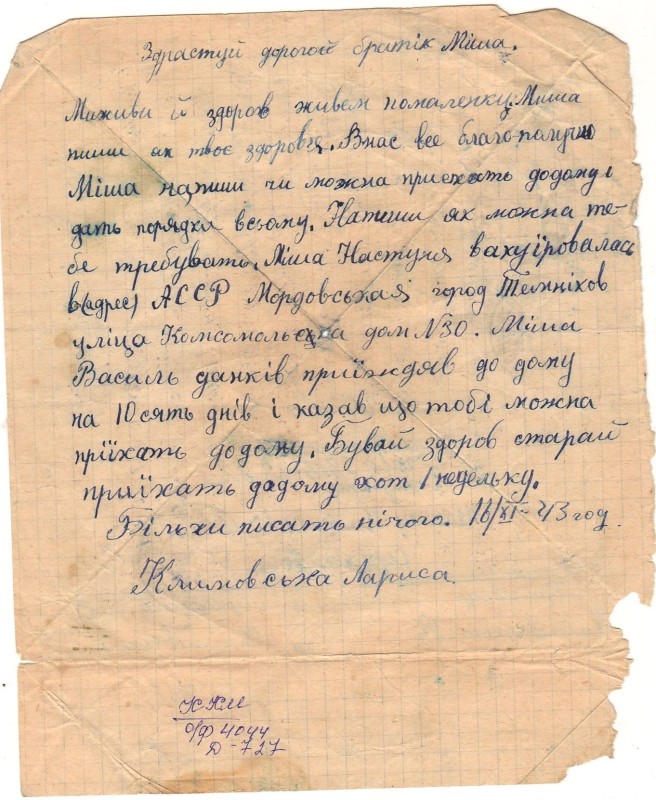 Здрастуй дорогой братік Міша.
Миживи й здоров живем помаленьку. Миша
пиши як твоє здоровя. Внас все благополучно
Міша напиши чи можна приехать додому і
дать порядки всьому. Напиши як можна те-
бе требувать. Міша Настуня вакуіровалась
в(адрес) АССР Мордовськая город Темніков
уліца Комсомольська дом №30. Міша
Василь данків приїждяв до дому
на 10сять днів і казав що тобі можна
приїхать додому. Бувай здоров старай
приїхать дадому хот 1 недельку.
Більхи писать нічого. 16/XI-43 год.
Климовська Лариса.
ККМ
о/ф 4044
Д-727